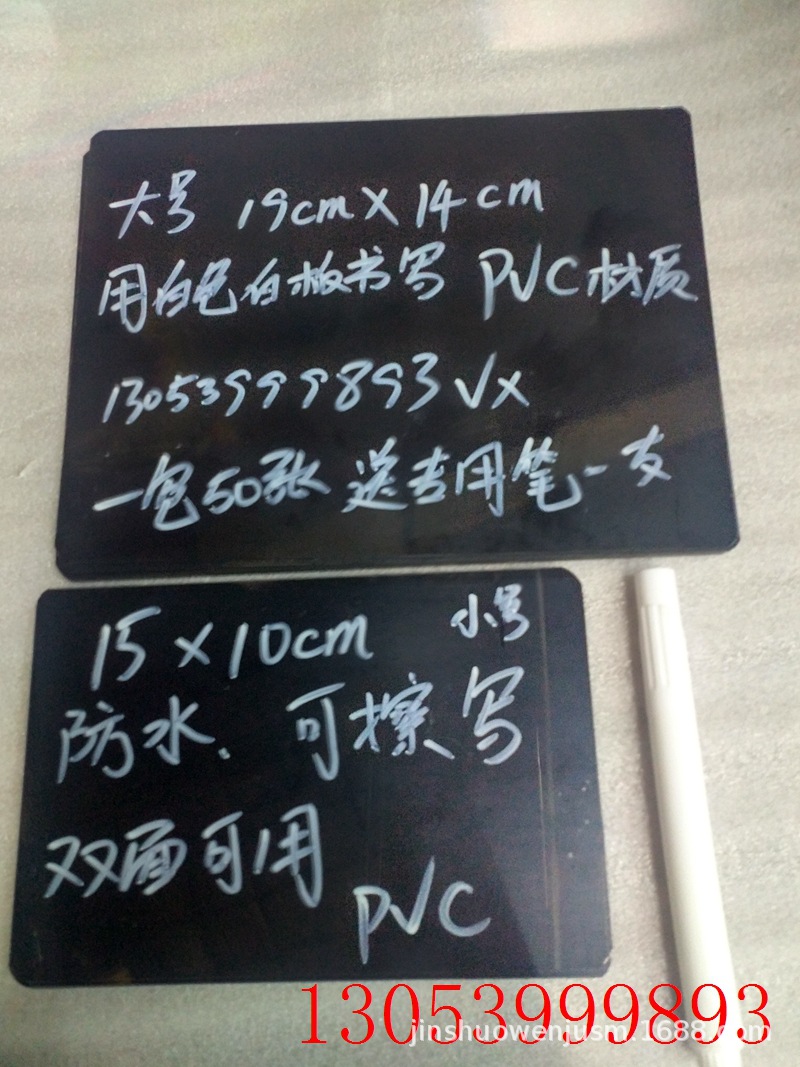 大号 19cm×14cm
用白色白板书写 PVC材质
13053999893 VX
一包50张 送专用笔一支
15×10cm 小号
防水、可擦写
双面可用
PVC
13053999893
jinshuowenjusm.1688.com